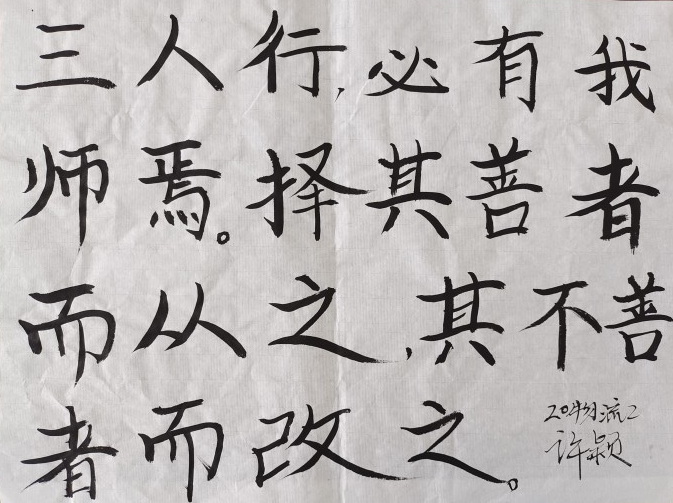 三人行,必有我
师焉。择其善者
而从之,其不善
者而改之。
20物流2
许颖